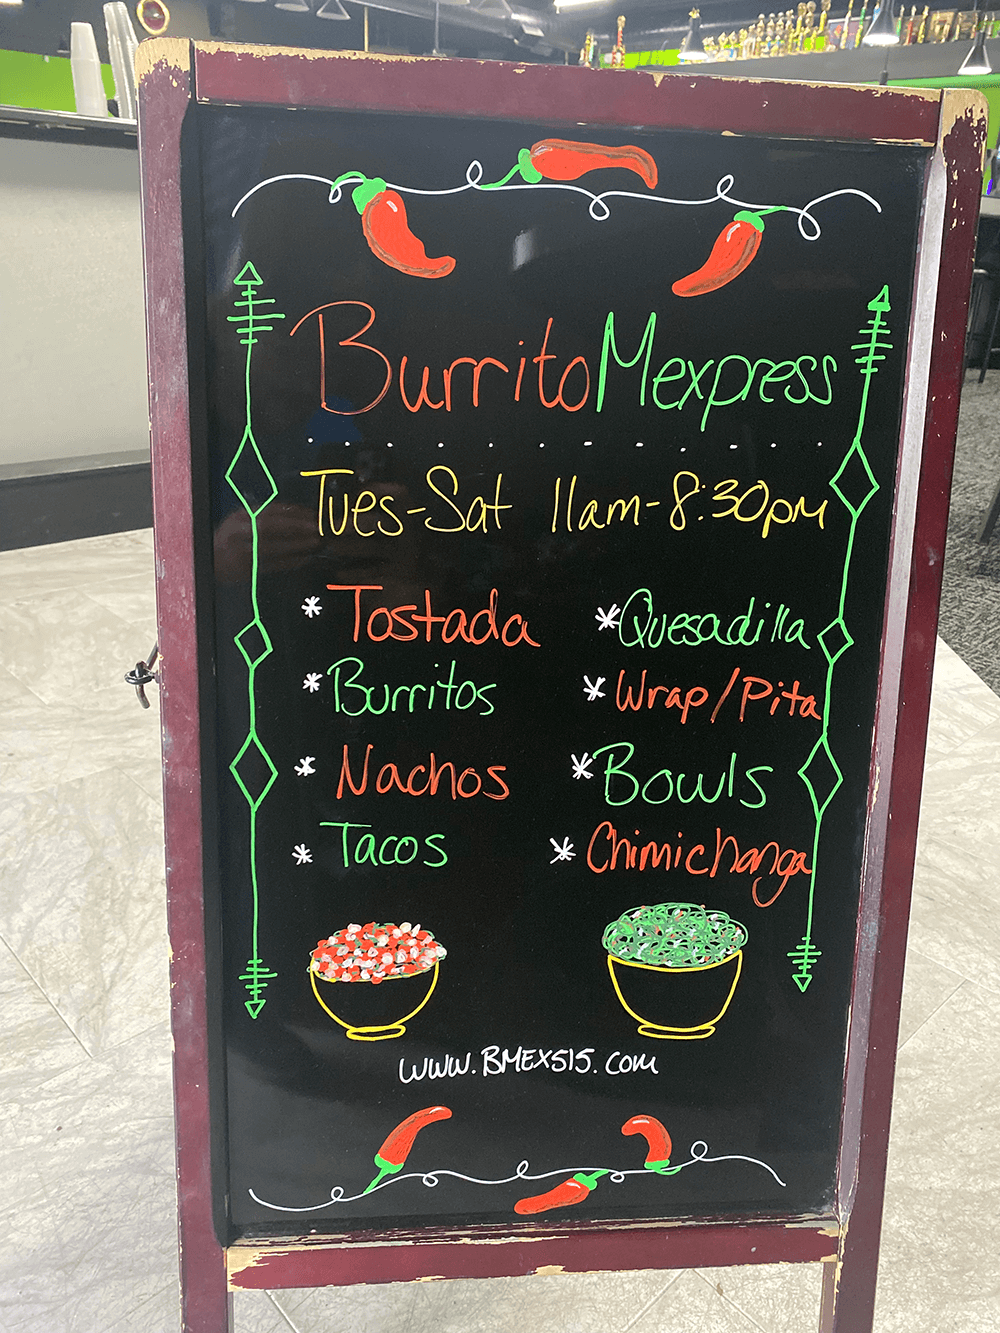 BurritoMexpress
Tues-Sat 11am-8:30pm
* Tostada
* Quesadilla
* Burritos
* Wrap/Pita
* Nachos
* Bowls
* Tacos
* Chimichanga
www.BMEX515.com